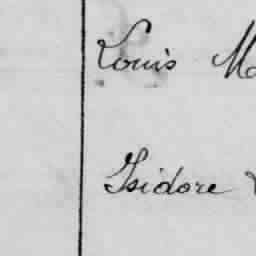 Louis
Isidore